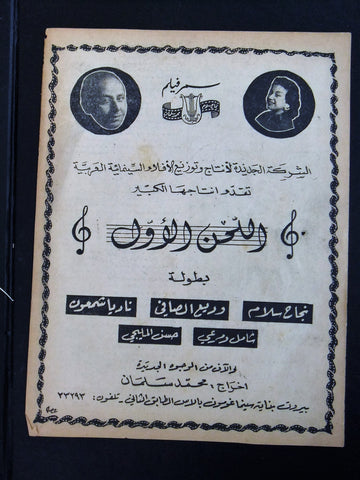 سمر فيلم
الشركة الجديدة لانتاج وتوزيع الأفلام السينمائية العربية
تقدم انتاجها الكبير
اللحن الأول
بطولة
نجاح سلام وديع الصافي ناديا شمعون
شامل ومرعي حسن المليجي
والآلاف من الوجوه الجديدة
اخراج: محمد سلمان
بيروت بناية سينما غومون بالاس الطابق الثاني - تلفون: ٣٣٢٩٣